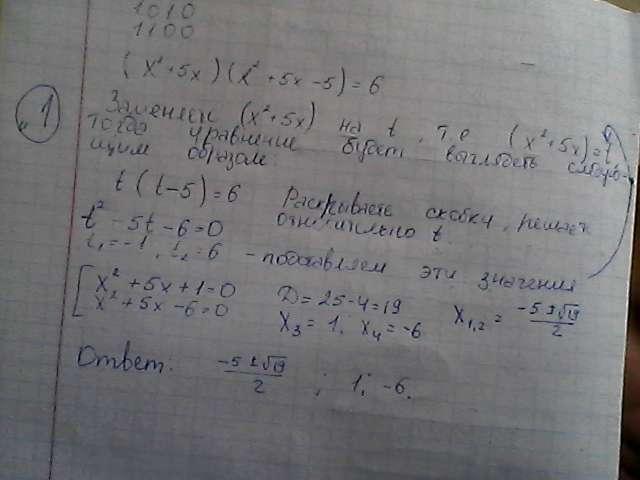 1010
1100
(x²+5x)(x²+5x-5)=6
1
Заменяем (x²+5x) на t, т.е (x²+5x)=t
тогда уравнение будет выглядеть следую-
щим образом:
t(t-5)=6 Раскрываете скобки, решаете
t²-5t-6=0 относительно t.
t₁=-1, t₂=6 - подставляем эти значения
[x²+5x+1=0 D=25-4=19 x₁,₂ = (-5±√19)/2
x²+5x-6=0 x₃=1, x₄=-6
Ответ: (-5±√19)/2 ; 1; -6.